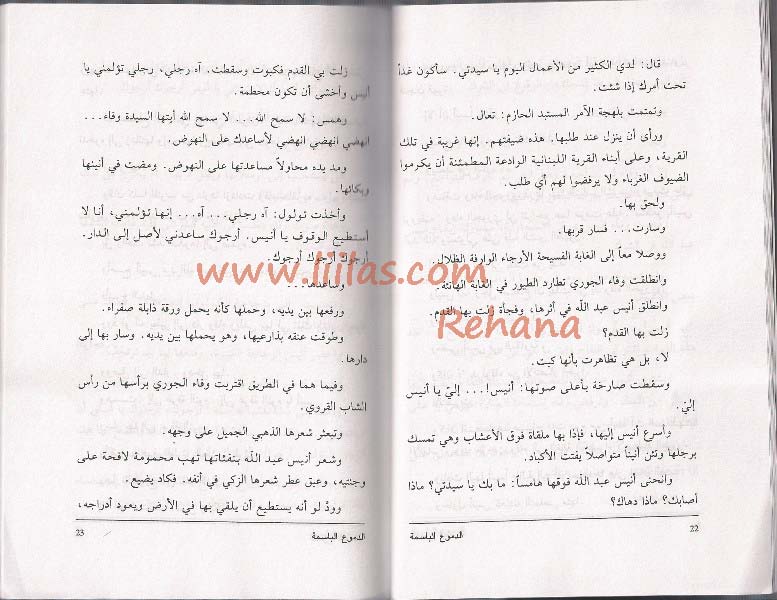 قال: لدي الكثير من الأعمال اليوم يا سيدتي. سأكون غداً
تحت أمرك إذا شئت.
وتمتمت بلهجة الآمر المستبد الحازم: تعال.
ورأى أن ينزل عند طلبها. هذه ضيفتهم. إنها غريبة في تلك
القرية، وعلى أبناء القرية اللبنانية الوادعة المطمئنة أن يكرموا
الضيوف الغرباء ولا يرفضوا لهم أي طلب.
ولحق بها.
وسارت... فسار قربها.
ووصلا معاً إلى الغابة الفسيحة الأرجاء الوارفة الظلال.
وانطلقت وفاء الجوري تطارد الطيور في الغابة الهانئة.
وانطلق أنيس عبد الله في أثرها، وفجأة زلت بها القدم.
زلت بها القدم؟
لا، بل هي تظاهرت بأنها كبت.
وسقطت صارخة بأعلى صوتها: أنيس!... إليّ يا أنيس
إليّ.
وأسرع أنيس إليها، فإذا بها ملقاة فوق الأعشاب وهي تمسك
برجلها وتئن أنيناً متواصلاً يفتت الأكباد.
وانحنى أنيس عبد الله فوقها هامساً: ما بك يا سيدتي؟ ماذا
أصابك؟ ماذا دهاك؟
22
الدموع الباسمة
زلت بي القدم فكبوت وسقطت. آه رجلي، رجلي تؤلمني يا
أنيس وأخشى أن تكون محطمة.
وهمس: لا سمح الله... لا سمح الله أيتها السيدة وفاء...
انهضي انهضي انهضي لأساعدك على النهوض.
ومد يده محاولاً مساعدتها على النهوض. ومضت في أنينها
وبكائها.
وأخذت تولول: آه رجلي... آه... إنها تؤلمني، أنا لا
أستطيع الوقوف يا أنيس. أرجوك ساعدني لأصل إلى الدار.
أرجوك أرجوك أرجوك.
وساعدها...
ورفعها بين يديه، وحملها كأنه يحمل ورقة ذابلة صفراء.
وطوقت عنقه بذارعيها، وهو يحملها بين يديه. وسار بها إلى
دارها.
وفيما هما في الطريق اقتربت وفاء الجوري برأسها من رأس
الشاب القروي.
وتبعثر شعرها الذهبي الجميل على وجهه.
وشعر أنيس عبد الله بنفثاتها تهب محمومة لافحة على
وجنتيه، وعبق عطر شعرها الزكي في أنفه. فكاد يضيع.
وودّ لو أنه يستطيع أن يلقي بها في الأرض ويعود أدراجه،
الدموع الباسمة
23
www.liilas.com
Rehana